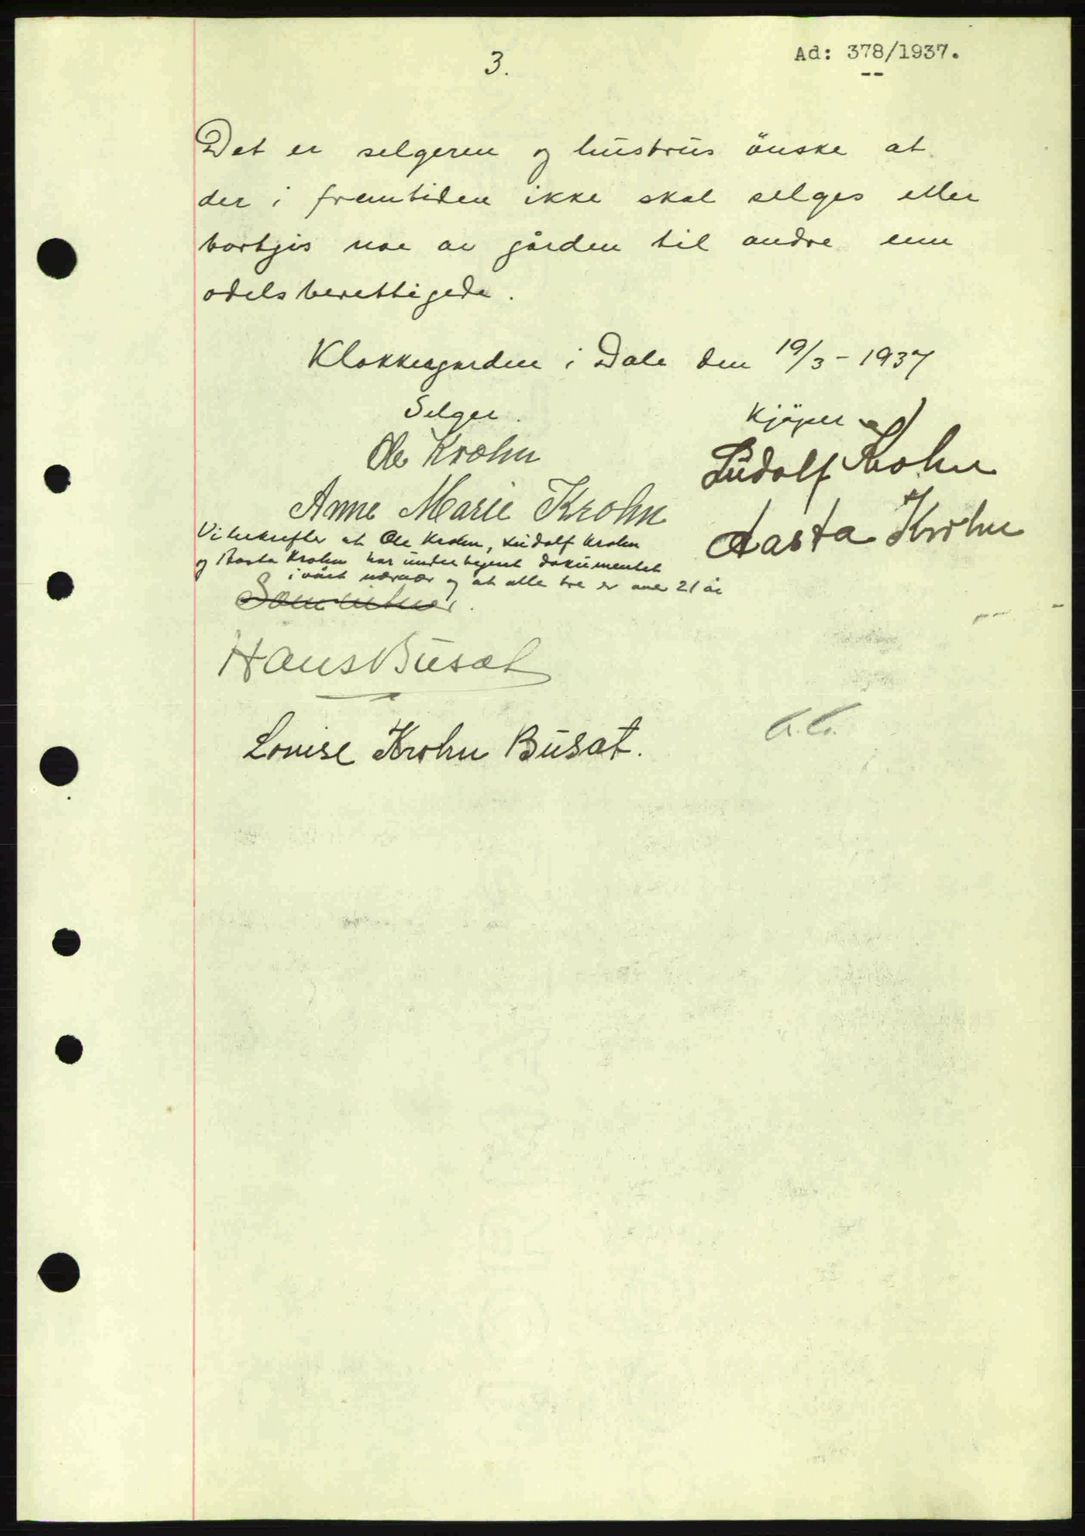 Ad: 378/1937.
3.
Det er selgeren og hustrus önske at
der i fremtiden ikke skal selges eller
bortgis noe av gården til andre enn
odelsberettigede.
Klokkergarden i Dale den 19/3-1937
Selger. Kjöper
Ole Krohn Ludolf Krohn
Anne Marie Krohn Aasta Krohn
Vi bekrefter at Ole Krohn, Ludolf Krohn
og Aasta Krohn har undertegnet dokumentet
i vårt nærvær og at alle tre er over 21 år
Hans Busat
Louise Krohn Busat.